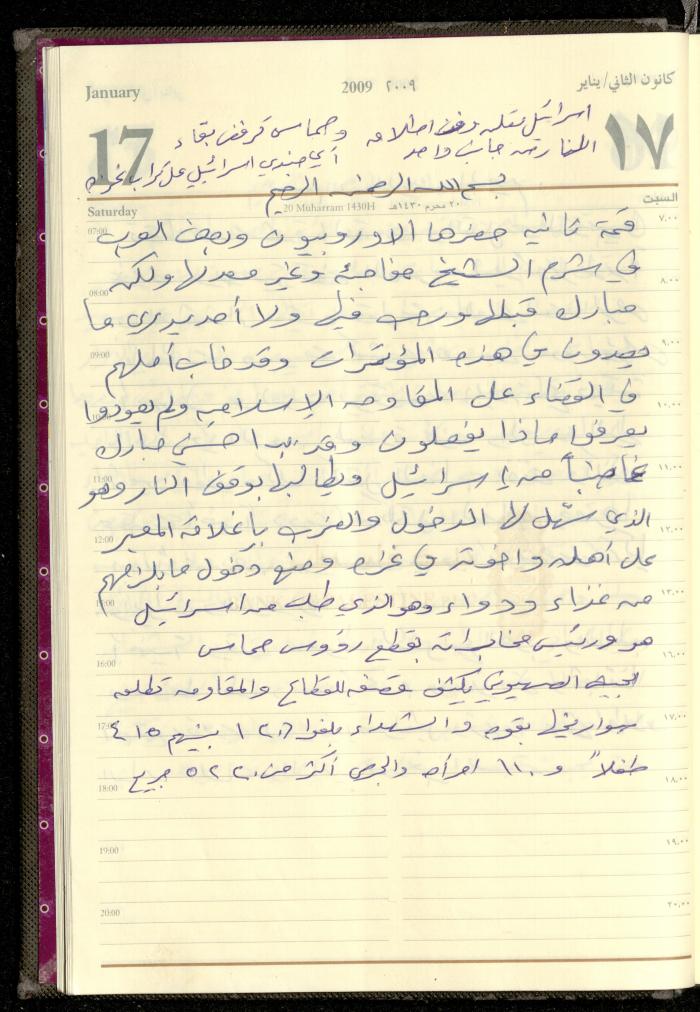 January
2009 ٢٠٠٩
كانون الثاني/يناير
17
١٧
اسرائيل تعلن وقف اطلاق
النار من جانب واحد
وحماس ترفض بقاء
أي جندي اسرائيلي على تراب غزة
بسم الله الرحمن الرحيم
Saturday
20 Muharram 1430H ٢٠ محرم ١٤٣٠هـ
السبت
قمة ثانيه حضرها الاوروبيون وبعض العرب
في شرم الشيخ مفاجئة وغير معد لها ولكن
مبارك قبلها ورحب فيها ولا أحد يدري ما
يريدون من هذه المؤتمرات وقد خاب أملهم
في القضاء على المقاومه الإسلاميه ولم يعودوا
يعرفوا ماذا يفعلون وقد بدا حسني مبارك
غاضباً من إسرائيل ويطالبها بوقف النار وهو
الذي سهّل لها الدخول والضرب بإغلاقه المعبر
على أهله واخوته في غزه ومنع دخول ما يلزمهم
من غذاء ودواء وهو الذي طلب من اسرائيل
هو ورئيس مخابراته بقطع رؤوس حماس
الجيش الصهيوني يكثف قصفه للقطاع والمقاومه تطلق
صواريخها بقوه والشهداء بلغوا ١٢٠٦ بينهم ٤١٥
طفلاً و ١١٠ امرأه والجرحى أكثر من ٥٢٢٠ جريح
07:00
٧.٠٠
08:00
٨.٠٠
09:00
٩.٠٠
10:00
١٠.٠٠
11:00
١١.٠٠
12:00
١٢.٠٠
١٣.٠٠
16:00
١٦.٠٠
17:00
١٧.٠٠
18:00
١٨.٠٠
19:00
١٩.٠٠
20:00
٢٠.٠٠